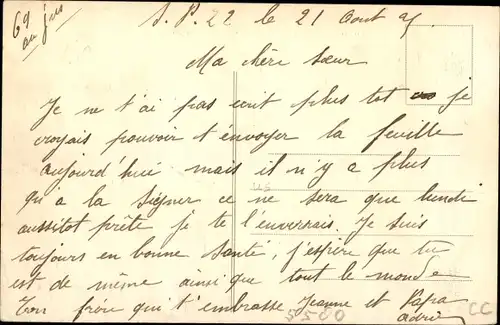 S. P. 22 le 21 Aout
Ma chère sœur
Je ne t'ai pas ecrit plus tot je
croyais pouvoir t'envoyer la feuille
aujourd'hui mais il n'y a plus
qu'a la signer ce ne sera que lundi
aussitot prête je te l'enverrais. Je suis
toujours en bonne santé, j'espère que tu
est de même ainsi que tout le monde
Ton frère qui t'embrasse Jeanne et Papa
5500 CC